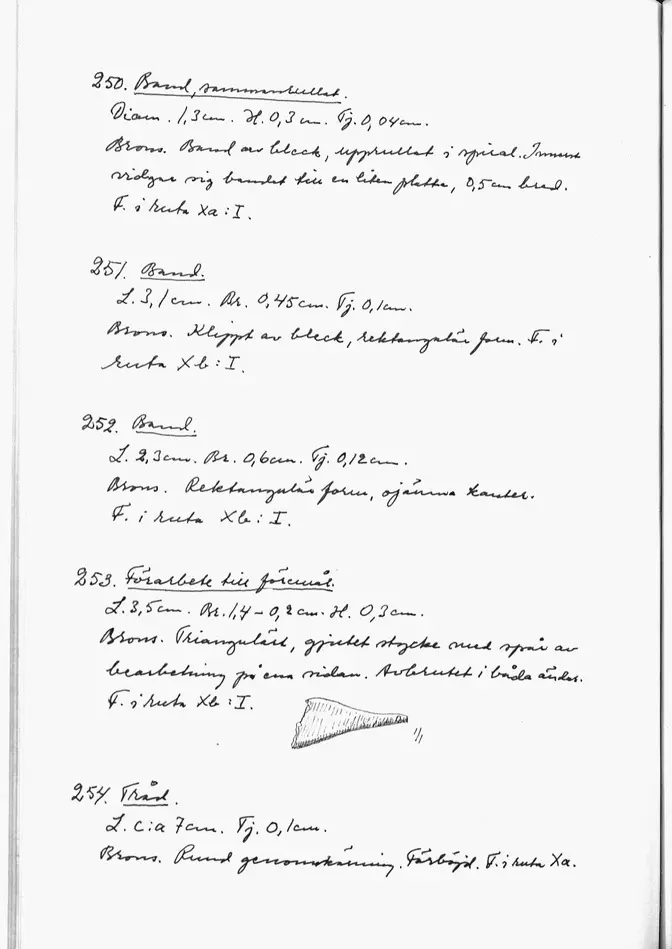 250. Band, sammanrullat.
Diam. 1,3 cm. H. 0,3 cm. Tj. 0,04 cm.
Brons. Band av bleck, upprullat i spiral. Innerst
vidgar sig bandet till en liten platta, 0,5 cm bred.
F. i ruta Xa : I.
251. Band.
L. 3,1 cm. Br. 0,45 cm. Tj. 0,1 cm.
Brons. Klippt av bleck, rektangulär form. F. i
ruta Xb : I.
252. Band.
L. 2,3 cm. Br. 0,6 cm. Tj. 0,12 cm.
Brons. Rektangulär form, ojämna kanter.
F. i ruta Xb : I.
253. Förarbete till föremål.
L. 3,5 cm. Br. 1,4 - 0,2 cm. H. 0,3 cm.
Brons. Triangulärt, gjutet stycke med spår av
bearbetning på ena sidan. Avbrutet i båda ändar.
F. i ruta Xb : I.
1/1
254. Tråd.
L. c:a 7 cm. Tj. 0,1 cm.
Brons. Rund genomskärning. Förböjd. F. i ruta Xa.